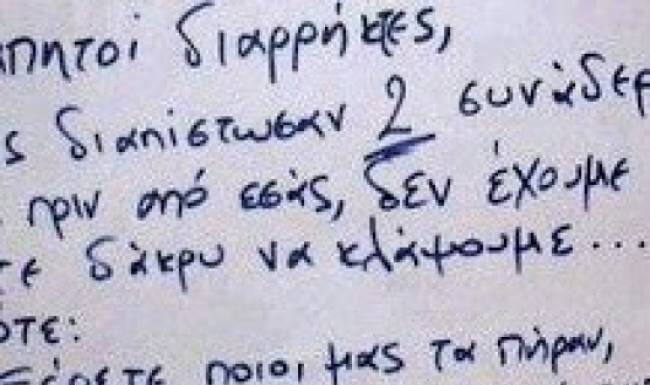 πητοί διαρρήκτες,
ς διαπίστωσαν 2 συνάδερ
πριν από εσάς, δεν έχουμε
τε δάκρυ να κλάψουμε...
ότε:
ξέρετε ποιοι μας τα πήραν,